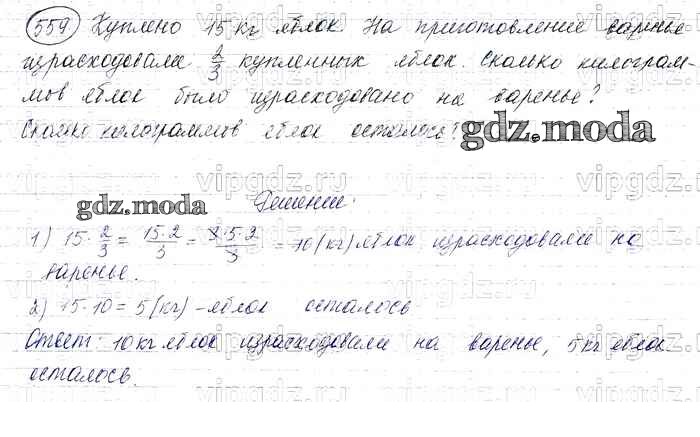 559 Куплено 15 кг яблок. На приготовление варенье
израсходовали 2/3 купленных яблок. Сколько килограм-
мов яблок было израсходовано на варенье?
Сколько килограммов яблок осталось?
gdz.moda
gdz.moda
Решение:
1) 15·2/3 = 15·2/3 = 3·5·2/3 = 10 (кг) яблок израсходовали на
варенье.
2) 15-10 = 5 (кг) - яблок осталось
Ответ: 10 кг яблок израсходовали на варенье, 5 кг яблок
осталось.